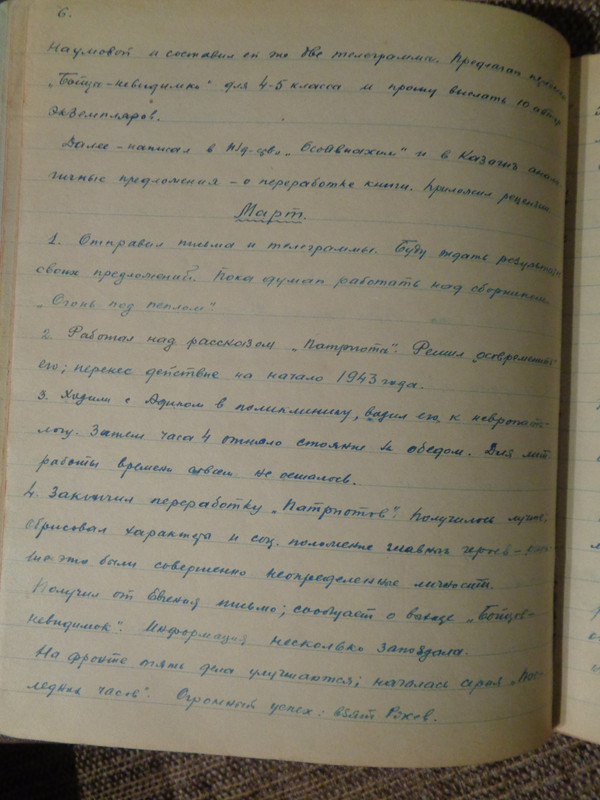 6.
Наумовой и составил ей же две телеграммы. Предлагал
„Бойца-невидимку" для 4-5 класса и прошу выслать 10 автор.
экземпляров.
Далее - написал в Изд-ство „Осоавиахим" и в Казань анало-
гичные предложения - о переработке книги. Приложил рецензии.
Март.
1. Отправил письма и телеграммы. Буду ждать результатов
своих предложений. Пока думал работать над сборником
„Огонь под пеплом".
2. Работал над рассказом „Патриоты". Решил осовременить
его; перенес действие на начало 1943 года.
3. Ходили с Адиком в поликлинику, водил его к невропато-
логу. Затем часа 4 отняло стояние за обедом. Для лит.
работы времени совсем не осталось.
4. Закончил переработку „Патриотов". Получилось лучше;
обрисовал характеры и соц. положение главных героев -
это были совершенно неопределенные личности.
Получил от Евгения письмо; сообщает о выходе „Бойцов-
невидимок". Информация несколько запоздала.
На фронте опять дела улучшаются; началась серия „Пос-
ледних часов". Огромный успех: взят Ржев.